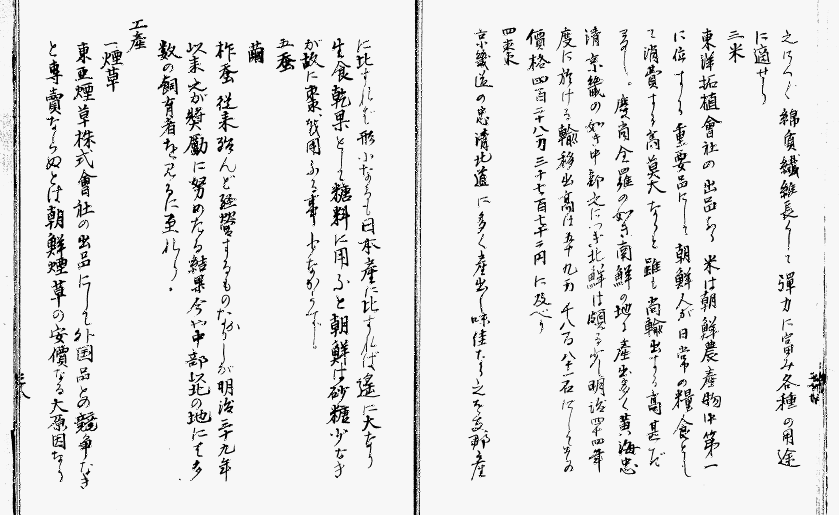 之につぐ綿質繊維長くして弾力に富み各種の用途
に適せり
三米
東洋拓植會社の出品あり米は朝鮮農産物中第一
に位する重要品にして朝鮮人が日常の糧食とし
て消費する高莫大なりと雖も尚輸出する高甚だ
多し。慶尚全羅の如き南鮮の地に産出多く黄海忠
清京畿の如き中部之につぎ北鮮は頗る少し明治四十四年
度に於ける輸移出高は五十九万 千八百八十一石にしてその
價格四百二十八万三千七百七十二円に及べり
四棗
京畿道の忠清北道に多く産出し味佳なり之を支那産
に比すれば形小なるも日本産に比すれば遙に大なり
生食乾果として糖料に用ふと朝鮮は砂糖少なき
が故に棗を用ふる事少なからず。
五蚕
繭
柞蚕 従来殆んど經營するものなかりしが明治三十九年
以来之が奨勵に努めたる結果今や中部以北の地にも多
数の飼育者を見るに至れり。
工産
一煙草
東亜煙草株式會社の出品にして外国品との競争なき
と專賣ならぬとは朝鮮煙草の安價なる大原因なり